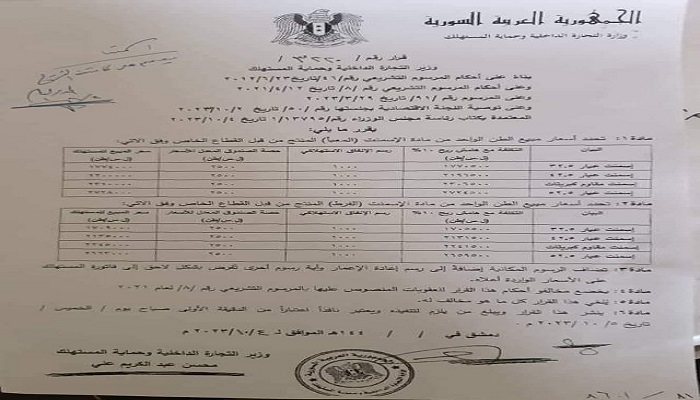 الجمهورية العربية السورية
وزارة التجارة الداخلية وحماية المستهلك
قرار رقم /
وزير التجارة الداخلية وحماية المستهلك
بناءً على أحكام المرسوم التشريعي رقم
وعلى أحكام المرسوم التشريعي رقم /٨/ تاريخ ٢٠٢١/٤/١٢
وعلى المرسوم رقم /٩١/ تاريخ ٢٠٢٣/٣/٢٩
وعلى توصية اللجنة الاقتصادية بجلستها رقم /٥٠/ تاريخ ٢٠٢٣/١٠/٢
المعتمدة بكتاب رئاسة مجلس الوزراء رقم /١/١٣٧٩٥ تاريخ ٢٠٢٣/١٠/٤
يقرر ما يلي:
مادة١: تحدد أسعار مبيع الطن الواحد من مادة الإسمنت (المعبأ) المنتج من قبل القطاع الخاص وفق الآتي:
البيان التكلفة مع هامش ربح ١٠% (ل.س/طن) رسم الإنفاق الاستهلاكي حصة الصندوق المعدل للأسعار (ل.س/طن) سعر المبيع للمستهلك (ل.س/طن)
إسمنت عيار ٣٢.٥ ١٧٧٠٥٠٠ ١٠٠٠ ٢٥٠٠ ١٧٧٤٠٠٠
إسمنت عيار ٤٢.٥ ٢١٩٦٥٠٠ ١٠٠٠ ٢٥٠٠ ٢٢٠٠٠٠٠
إسمنت مقاوم كبريتات ٢٣٠٦٥٠٠ ١٠٠٠ ٢٥٠٠ ٢٣١٠٠٠٠
إسمنت عيار ٥٢.٥ ٢٧٢٤٥٠٠ ١٠٠٠ ٢٥٠٠ ٢٧٢٨٠٠٠
مادة٢: تحدد أسعار مبيع الطن الواحد من مادة الإسمنت (الفرط) المنتج من قبل القطاع الخاص وفق الآتي:
البيان التكلفة مع هامش ربح ١٠% (ل.س/طن) رسم الإنفاق الاستهلاكي حصة الصندوق المعدل للأسعار (ل.س/طن) سعر المبيع للمستهلك (ل.س/طن)
إسمنت عيار ٣٢.٥ ١٧٠٥٥٠٠ ١٠٠٠ ٢٥٠٠ ١٧٠٩٠٠٠
إسمنت عيار ٤٢.٥ ٢١٣١٥٠٠ ١٠٠٠ ٢٥٠٠ ٢١٣٥٠٠٠
إسمنت مقاوم كبريتات ٢٢٤١٥٠٠ ١٠٠٠ ٢٥٠٠ ٢٢٤٥٠٠٠
إسمنت عيار ٥٢.٥ ٢٦٥٩٥٠٠ ١٠٠٠ ٢٥٠٠ ٢٦٦٣٠٠٠
مادة٣: تضاف الرسوم المكانية إضافة إلى رسم إعادة الإعمار وأية رسوم أخرى تفرض بشكل لاحق إلى فاتورة المستهلك
على الأسعار الواردة أعلاه.
مادة٤: يخضع مخالفو أحكام هذا القرار للعقوبات المنصوص عليها بالمرسوم التشريعي رقم /٨/ لعام ٢٠٢١
مادة٥: يُلغى هذا القرار كل ما هو مخالف له.
مادة٦: ينشر هذا القرار ويبلغ من يلزم لتنفيذه ويعتبر نافذاً اعتباراً من الدقيقة الأولى صباح يوم / الخميس /
تاريخ ٥ / ١٠ / ٢٠٢٣ م .
دمشق في / / ١٤٤ هـ الموافق لـ ٤ / ١٠ / ٢٠٢٣ م
وزير التجارة الداخلية وحماية المستهلك
محسن عبد الكريم علي